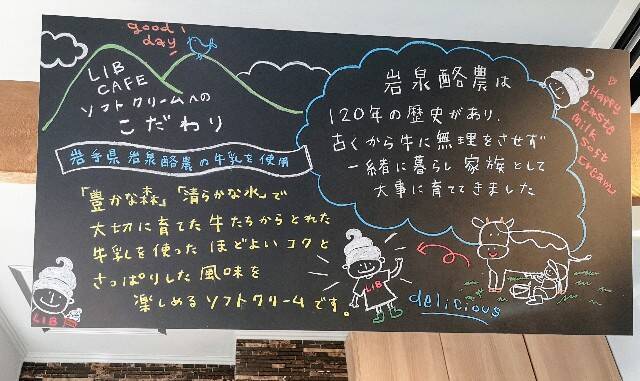 good!
day
LIB
CAFE
ソフトクリームへの
こだわり
岩手県岩泉酪農の牛乳を使用
「豊かな森」「清らかな水」で
大切に育てた牛たちからとれた
牛乳を使った ほどよいコクと
さっぱりした 風味を
楽しめるソフトクリームです。
LIB
岩泉酪農は
120年の歴史があり、
古くから牛に無理をさせず
一緒に暮らし 家族として
大事に育ててきました
Happy
taste
milk
soft
cream
LIB
delicious